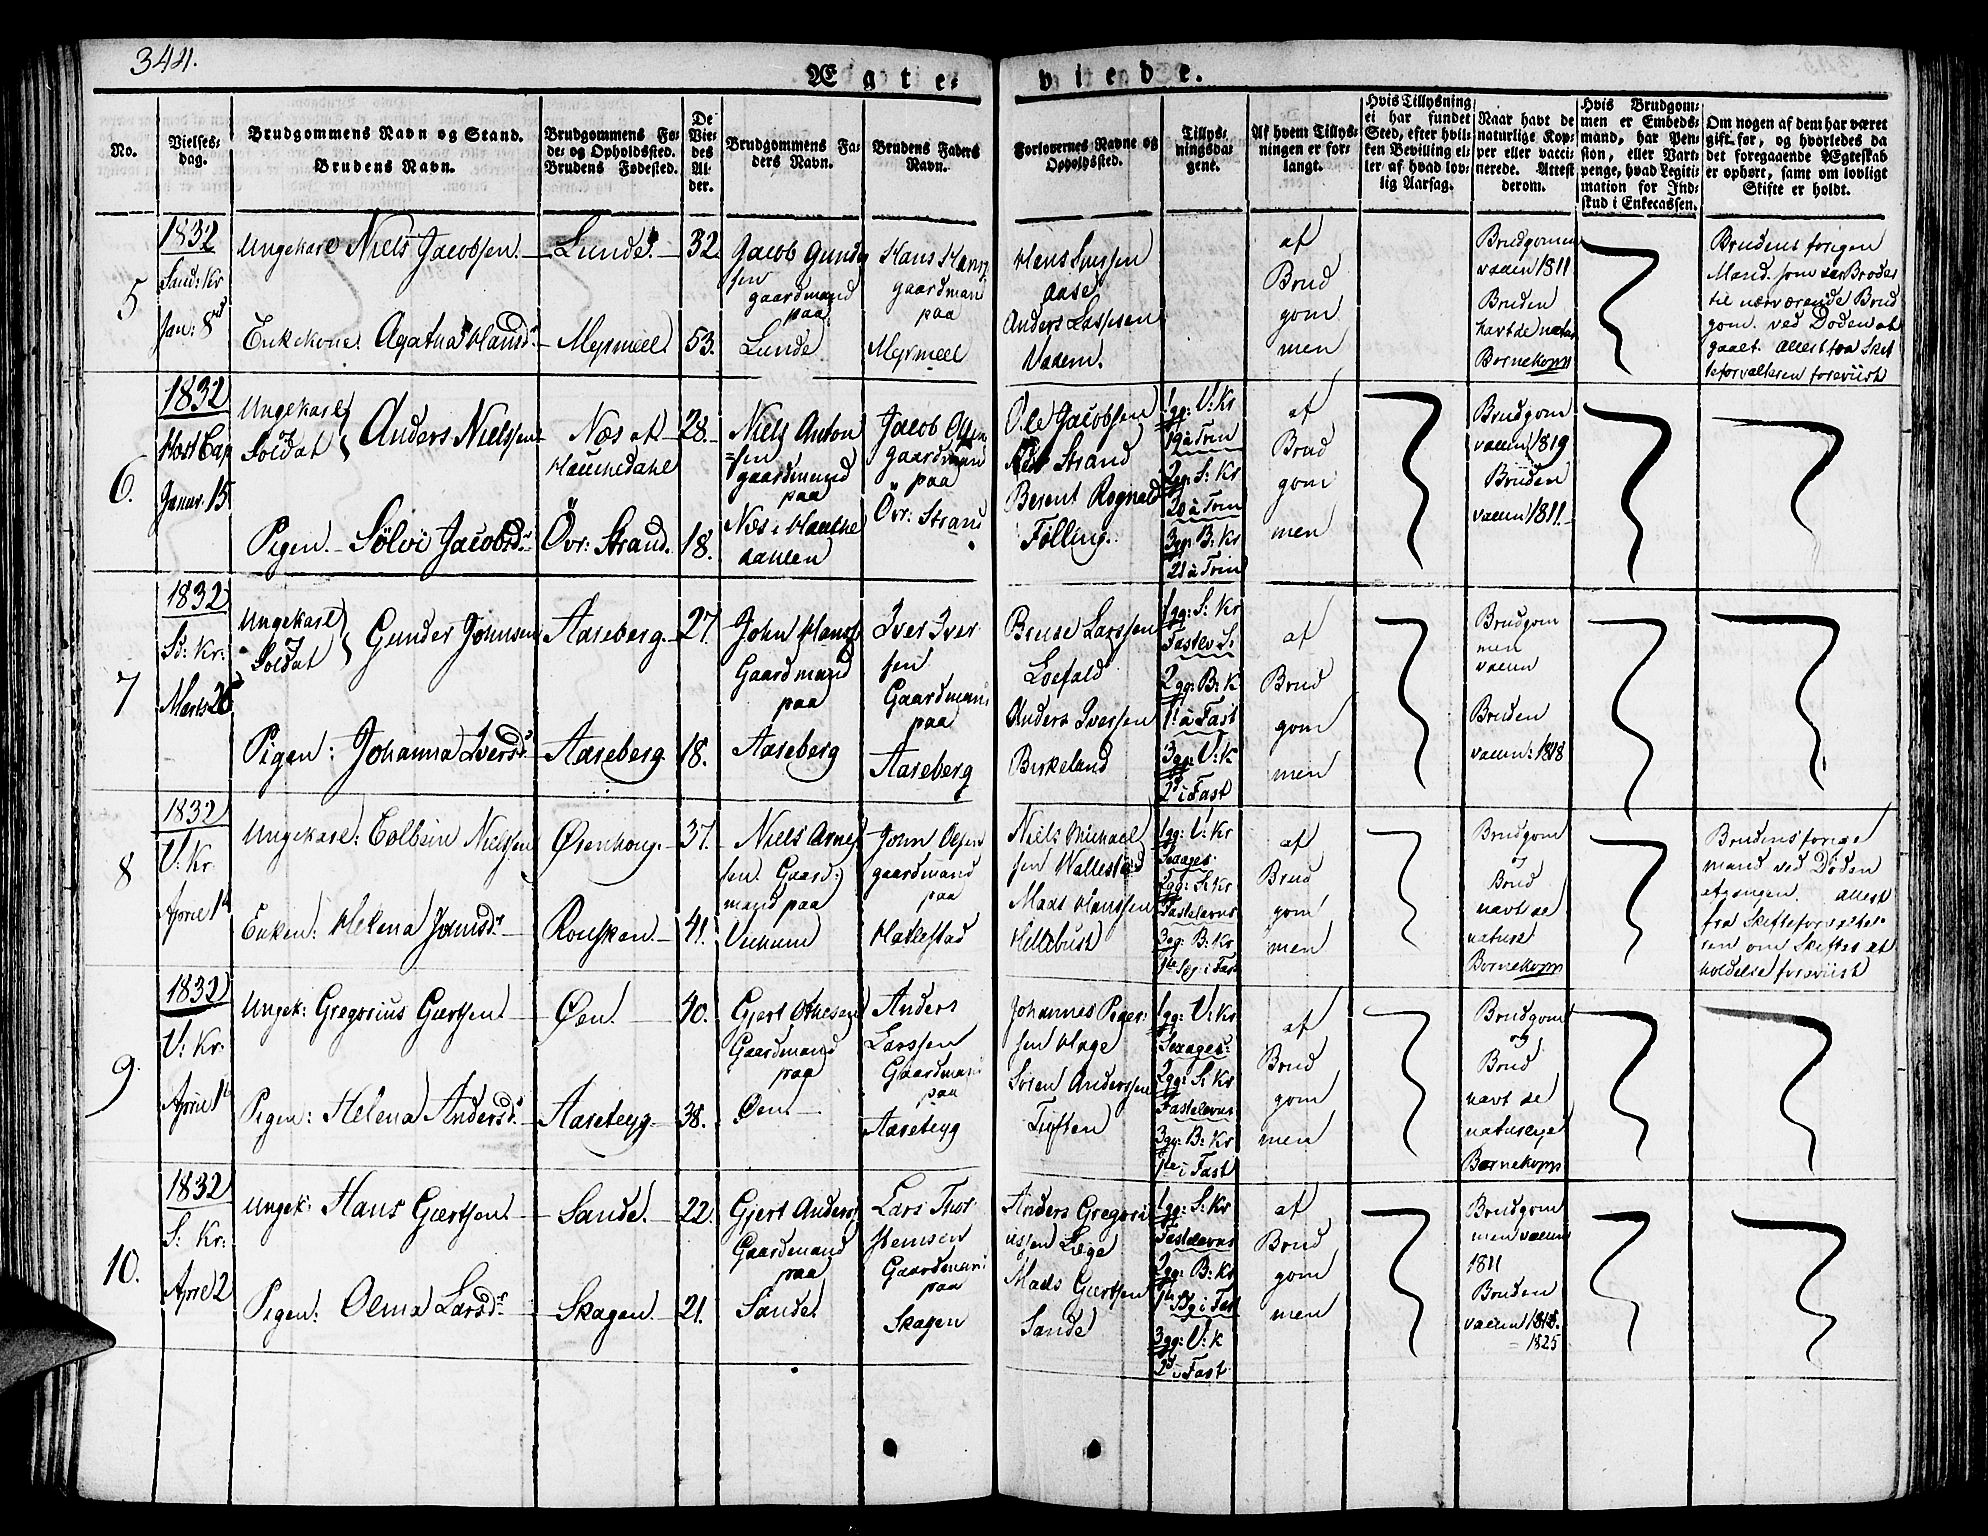 344.
Ægte-
viede.
No.
Vielses-
dag.
Brudgommens Navn og Stand.
Brudens Navn.
Brudgommens Fø-
de- og Opholdssted.
Brudens Fødested.
De
Vie-
des
Al-
der.
Brudgommens Fa-
ders Navn.
Brudens Faders
Navn.
Forlovernes Navne og
Opholdssted.
Tillys-
ningsda-
gene.
Af hvem Tillys-
ningen er for-
langt.
Hvis Tillysning
ei har fundet
Sted, efter hvil-
ken Bevilling el-
ler af hvad lov-
lig Aarsag.
Naar havt de
naturlige Kop-
per eller vacci-
nerede. Attest
derom.
Hvis Brudgom-
men er Embeds-
mand, har Pen-
sion, eller Vart-
penge, hvad Legiti-
mation for Ind-
skud i Enkecassen.
Om nogen af dem har været
gift før, og hvorledes da
det foregaaende Ægteskab
er ophørt, samt om lovligt
Skifte er holdt.
5
1832
Sand: Kr
Jan: 8d
Ungekarl Niels Jacobsen.
Enkekone. Agatha Hansdr
Lunde.
Myrmeel.
32.
53.
Jacob Gunder
sen
gaardmand
paa
Lunde
Hans Hans
gaardman
paa
Myrmeel
Hans Iversen
Aase
Anders Lassesen
Vadem.
af
Brud
gom
men
Brudgomen
vacen 1811
Bruden
havt de natur
Bornekopp
Brudens forigen
Mand. som var Broder
til nærværende Brud
gom. ved Døden at
gaalt. Allest fra Skif
teforvalteren foreviist
6.
1832
Høst Cap
Januar. 15
Ungekarl
Soldat
Anders Nielsen
Pigen. Sølvi Jacobsdr
Næs at
Haukedahl
Övr: Strand.
28.
18.
Niels Anton
=sen
gaardmand
paa
Næs i Hauke
dahlen
Jacob Olsen
gaardman
paa
Övr: Strand
Ole Jacobsen
Strand
Berent Rognald
Følling.
1gg: V: Kr
19 à Trin
2gg: S: Kr
20 à Trin
3gg: B: Kr
21 à Trin
af
Brud
gom
men
Brudgom
vacen 1819
Bruden
vacen 1811.
7
1832
Sd: Kr:
Marts 25
Ungekarl
Soldat
Gunder Johnsen
Pigen: Johanna Iversdr
Aaseberg.
Aaseberg.
27.
18.
John Hans
Gaardmand
paa
Aaseberg
Iver Iver
sen
Gaardmand
paa
Aaseberg
Bruse Larssen
Loefald
Anders Iversen
Birkeland
1gg: S: Kr
Fastelv S:
2gg: B: K
1t à Fast
3gg: V: K
2d i Fast
af
Brud
gom
men
Brudgom
men
vacen
Bruden
vacen: 1818
8
1832
V: Kr.
April 1t
Ungekarl: Colbein Nielsen
Enken: Helena Johnsdr
Øvenhoug.
Rousken.
37.
41.
Niels Arne
sen. Gaard
mand paa
Viekum
John Olsen
gaardmand
paa
Hatlestad
Niels Michael
sen Wallestad
Mads Hanssen
Hellebust
1gg: V: Kr
Sexages:
2gg: S: Kr
Fastelavns
3gg: B: Kr
1te Sg: i Fast
af
Brud
gom
men
Brudgom
og
Brud
havt de
naturl
Bornekopp
Brudens forige
mand ved Döden
afgangen. allest
fra Skifteforvalte-
ren om Skiftes af
holdelse foreviist
9.
1832
V: Kr:
April 1t
Ungek: Gregorius Giertsen
Pigen: Helena Andersdr
Øen.
Aaseteyg.
40.
38.
Gjert Othesen
Gaardmand
paa
Øen.
Anders
Larssen
Gaardman
paa
Aaseteyg
Johannes Peder-
sen Hage
Sören Anderssen
Tuften
1gg: V: Kr
Sexages:
2gg: S: Kr
Fastelavns
3gg: B: Kr
1te i Fast
af
Brud
gom
men
Brudgom
og
Brud
havt de
naturlige
Bornekopp
10.
1832
S: Kr:
April 2
Ungek: Hans Giertsen.
Pigen: Olina Larsdr
Sande.
Skagen.
22.
21.
Gjert Anders
Gaardmand
paa
Sande.
Lars Thor
stensen
Gaardman
paa
Skagen
Anders Gregori
ussen Lege
Mads Giertsen
Sande
1gg: S: Kr
Fastelavns
2gg: B: Kr
1te Sg i Fast
3gg: V: K
2d i Fast
af
Brud
gom
men
Brudgom
men vacen
1811
Bruden
vacen 1818.
1825